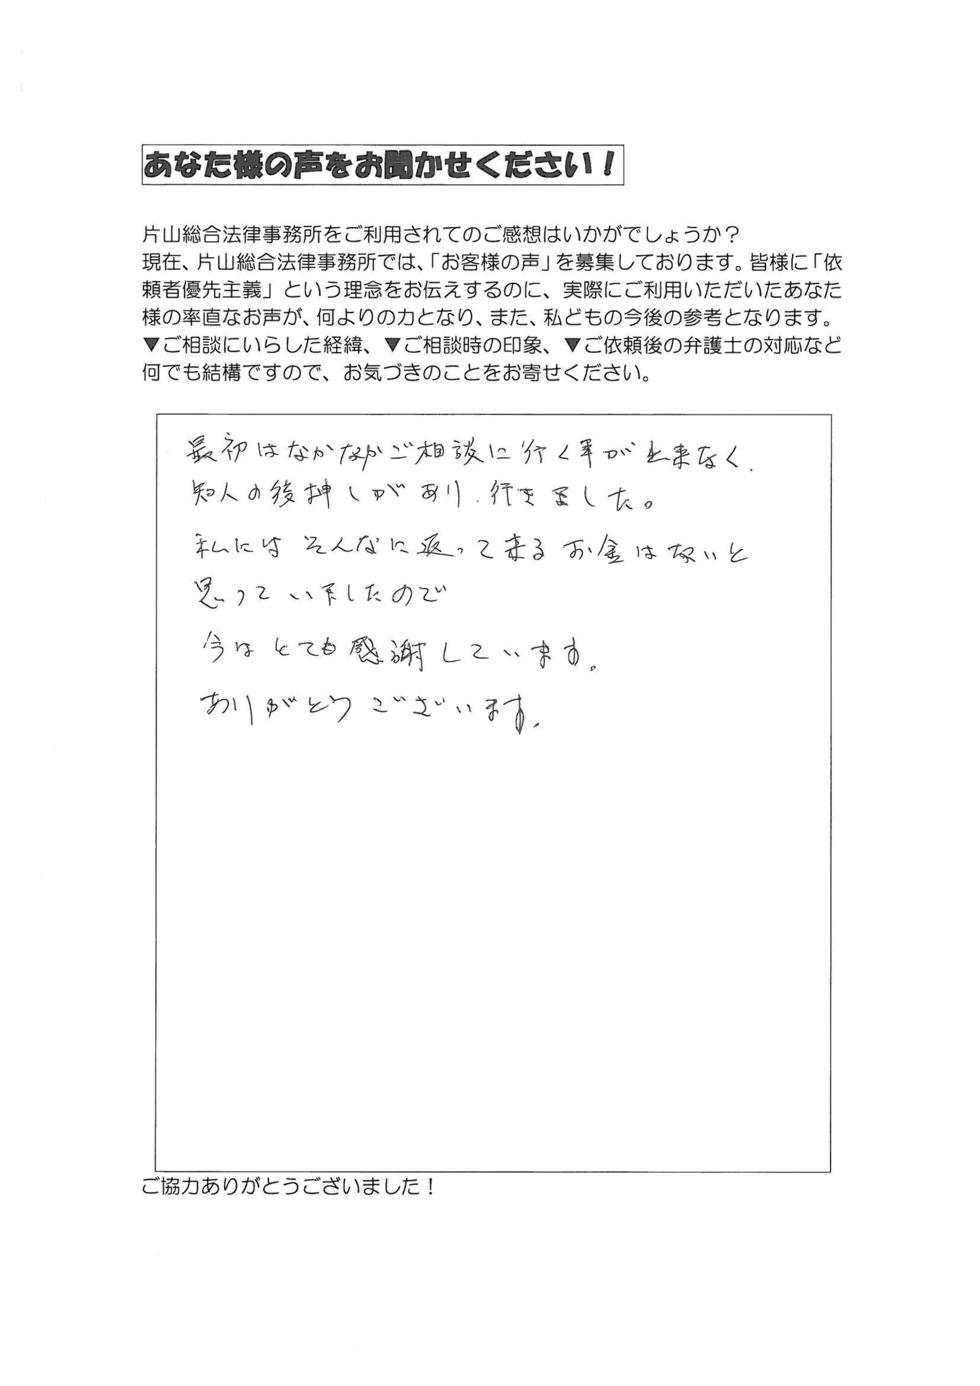 あなた様の声をお聞かせください！
片山総合法律事務所をご利用されてのご感想はいかがでしょうか？
現在、片山総合法律事務所では、「お客様の声」を募集しております。皆様に「依
頼者優先主義」という理念をお伝えするのに、実際にご利用いただいたあなた
様の率直なお声が、何よりの力となり、また、私どもの今後の参考となります。
▼ご相談にいらした経緯、▼ご相談時の印象、▼ご依頼後の弁護士の対応など
何でも結構ですので、お気づきのことをお寄せください。
最初はなかなかご相談に行く事が出来なく、
知人の後押しがあり、行きました。
私には そんなに返って来るお金はないと
思っていましたので
今は とても感謝しています。
ありがとうございます。
ご協力ありがとうございました！